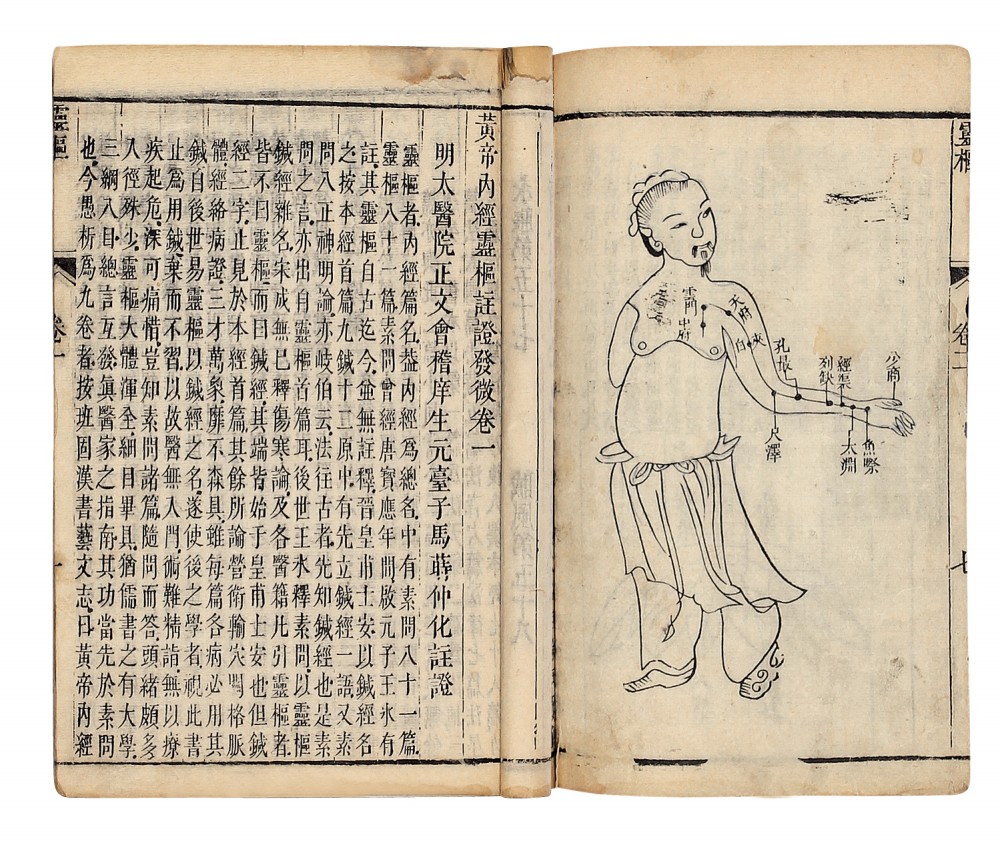 靈樞
卷二
七
雲門
中府
天府
俠
白
孔最
列缺
經渠
少商
尺澤
太淵
魚際
黃帝內經靈樞註證發微卷一
明太醫院正文會稽庠生元臺子馬蒔仲化註證
靈樞者內經篇名葢內經爲總名中有素問八十一篇
靈樞八十一篇素問曾經唐寶應年間啟元子王氷有
註其靈樞自古迄今並無註釋晉皇甫士安以鍼經名
之按本經首篇九鍼十二原中有先立鍼經一語又素
問八正神明論亦岐伯云法往古者先知鍼經也是素
問之言亦出自靈樞首篇耳後世王氷釋素問以靈樞
鍼經雜名宋成無已釋傷寒論及各醫籍凡引靈樞者
皆不曰靈樞而曰鍼經其端皆始于皇甫士安也但鍼
經二字止見於本經首篇其餘所論營衛輸穴關格脈
體經絡病證三才萬象靡不森具雖每篇各病必用其
鍼自後世易靈樞以鍼經之名遂使後之學者視此書
止爲用鍼棄而不習以故醫無入門術難精詣無以療
疾起危深可痛惜豈知素問諸篇隨問而答頭緒頗多
入徑殊少靈樞大體渾全細目畢具猶儒書之有大學
三綱八目總言互發眞醫家之指南其功當先於素問
也今愚析爲九卷者按班固漢書藝文志曰黃帝內經
靈樞
卷一
一